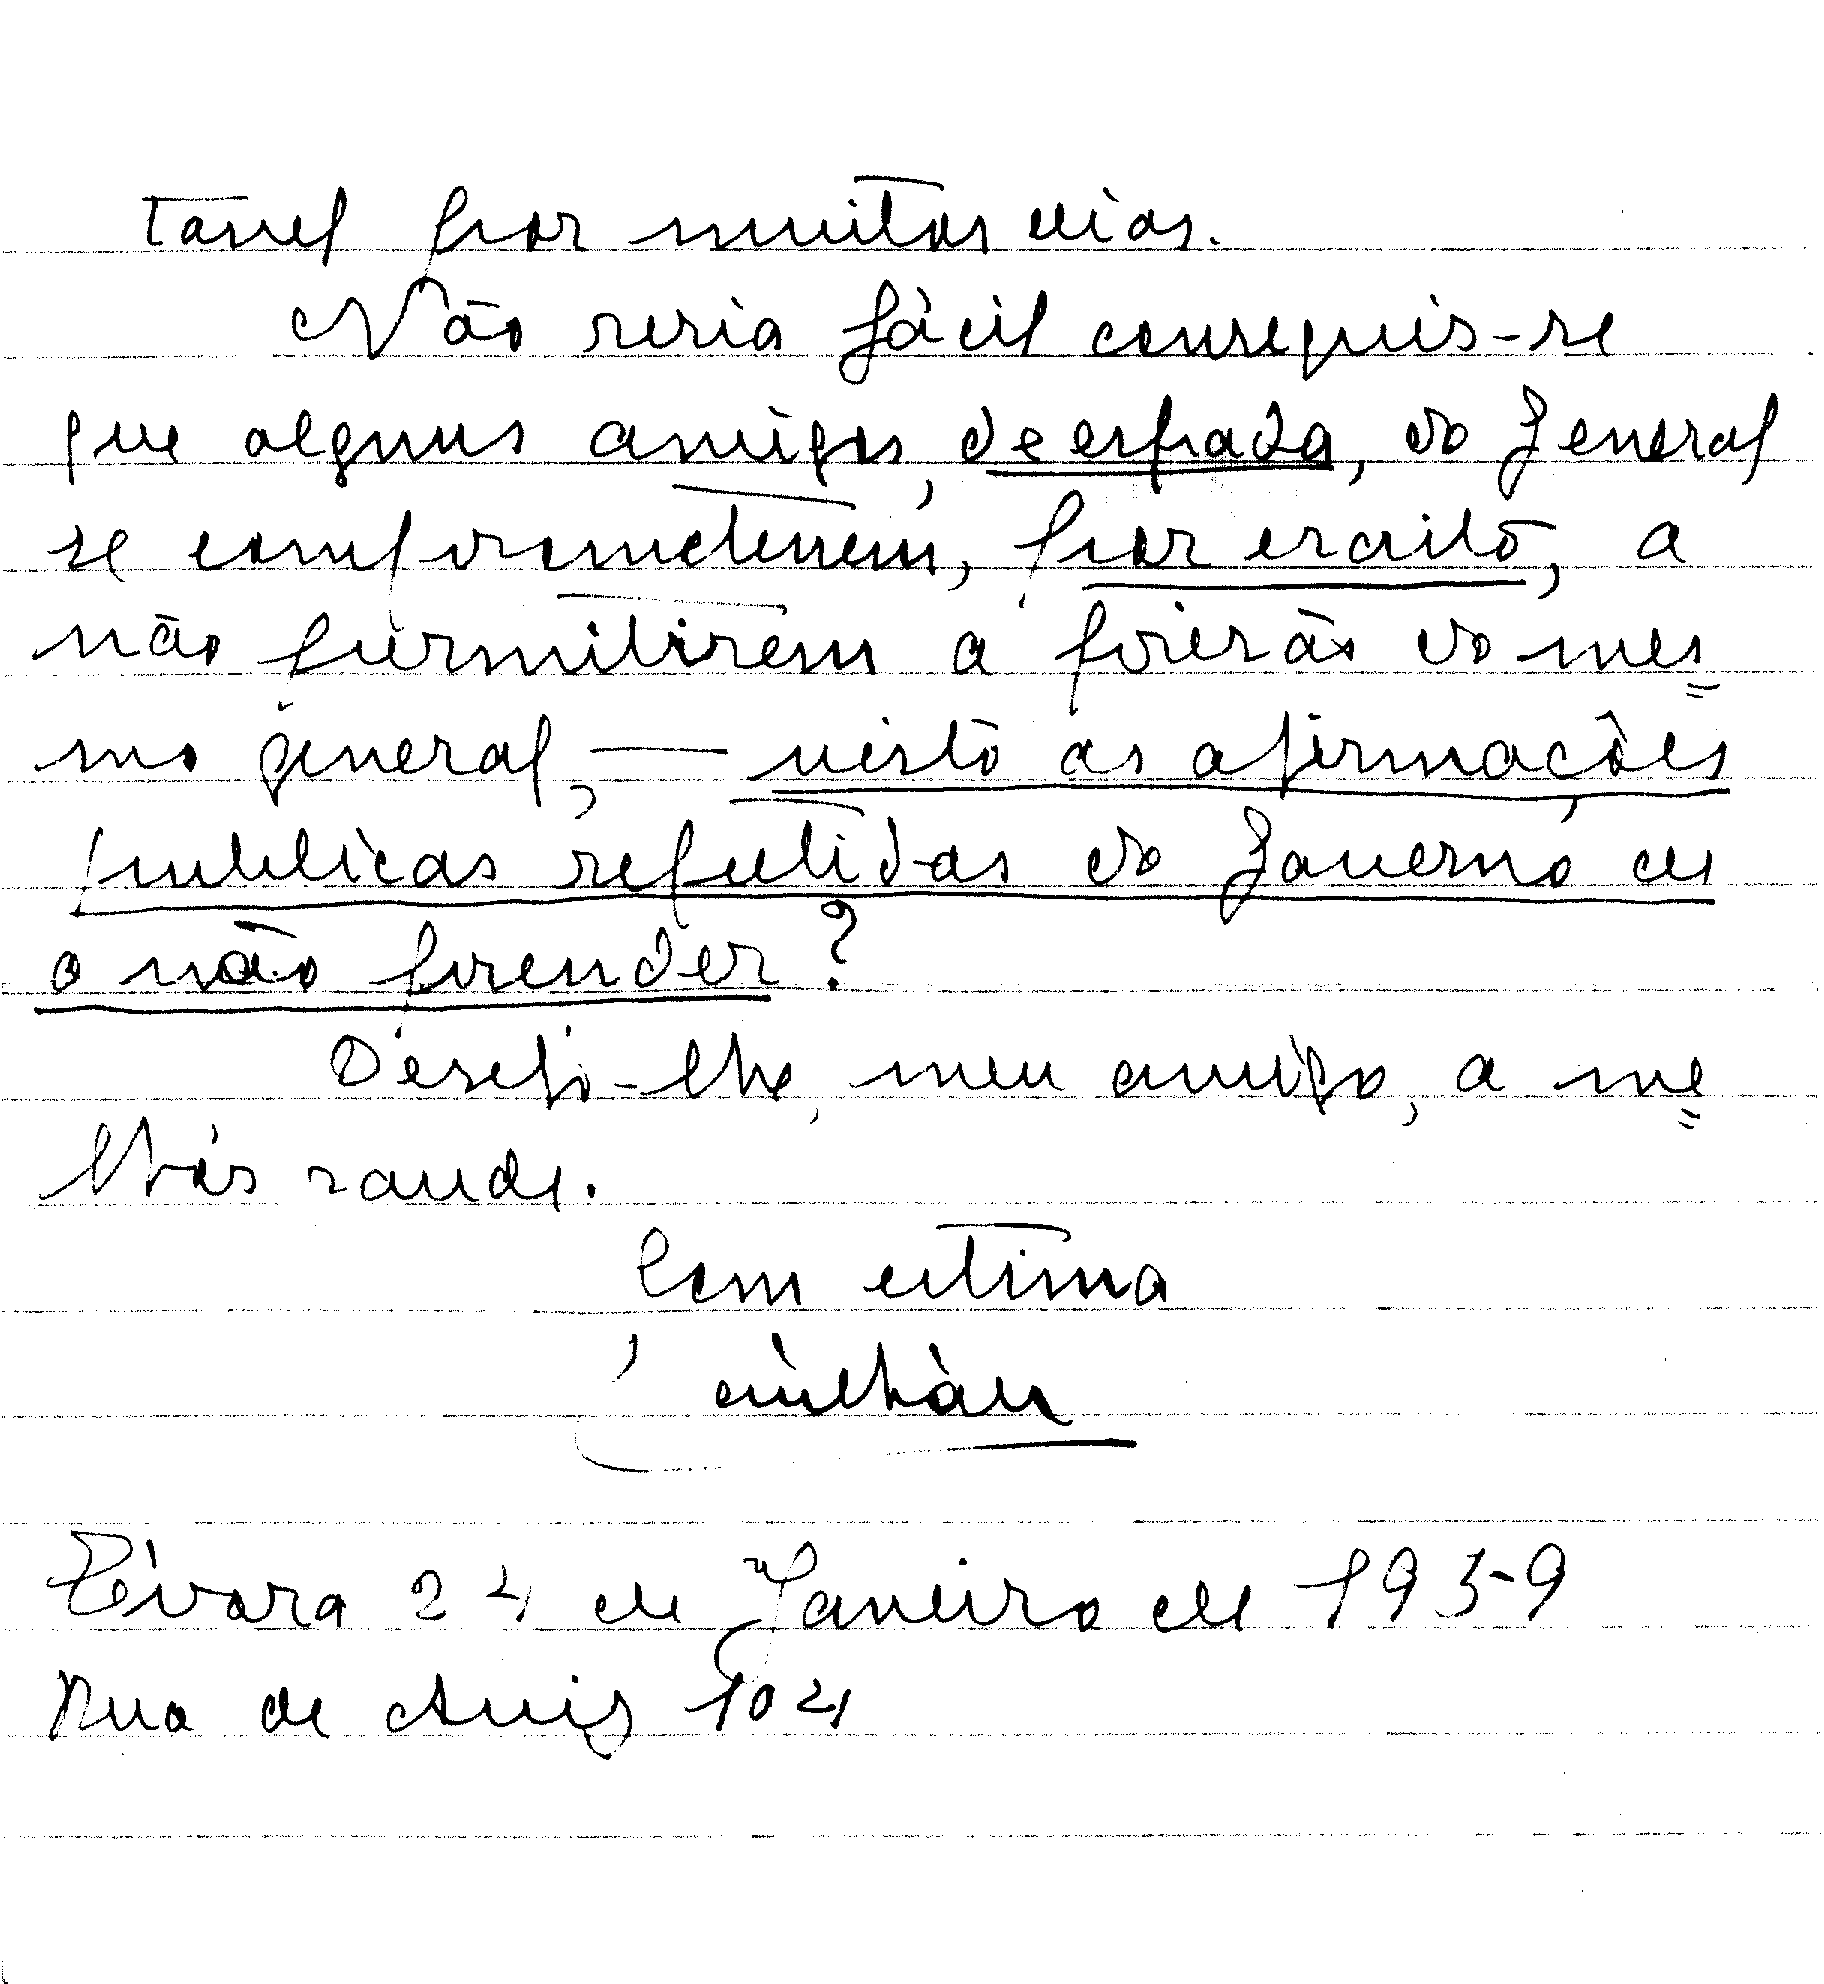 tavel por muitos dias.
Não seria fácil conseguir-se
que alguns amigos, de espada, do General
se comprometerem, por escrito, a
não permitirem a prisão do mes
mo general, — visto as afirmações
publicas repetidas do Governo de
o não prender?
Desejo-lhe, meu amigo, a me
lhor saude.
Com estima
Évora 24 de Janeiro de 1959
Rua de Aviz 104